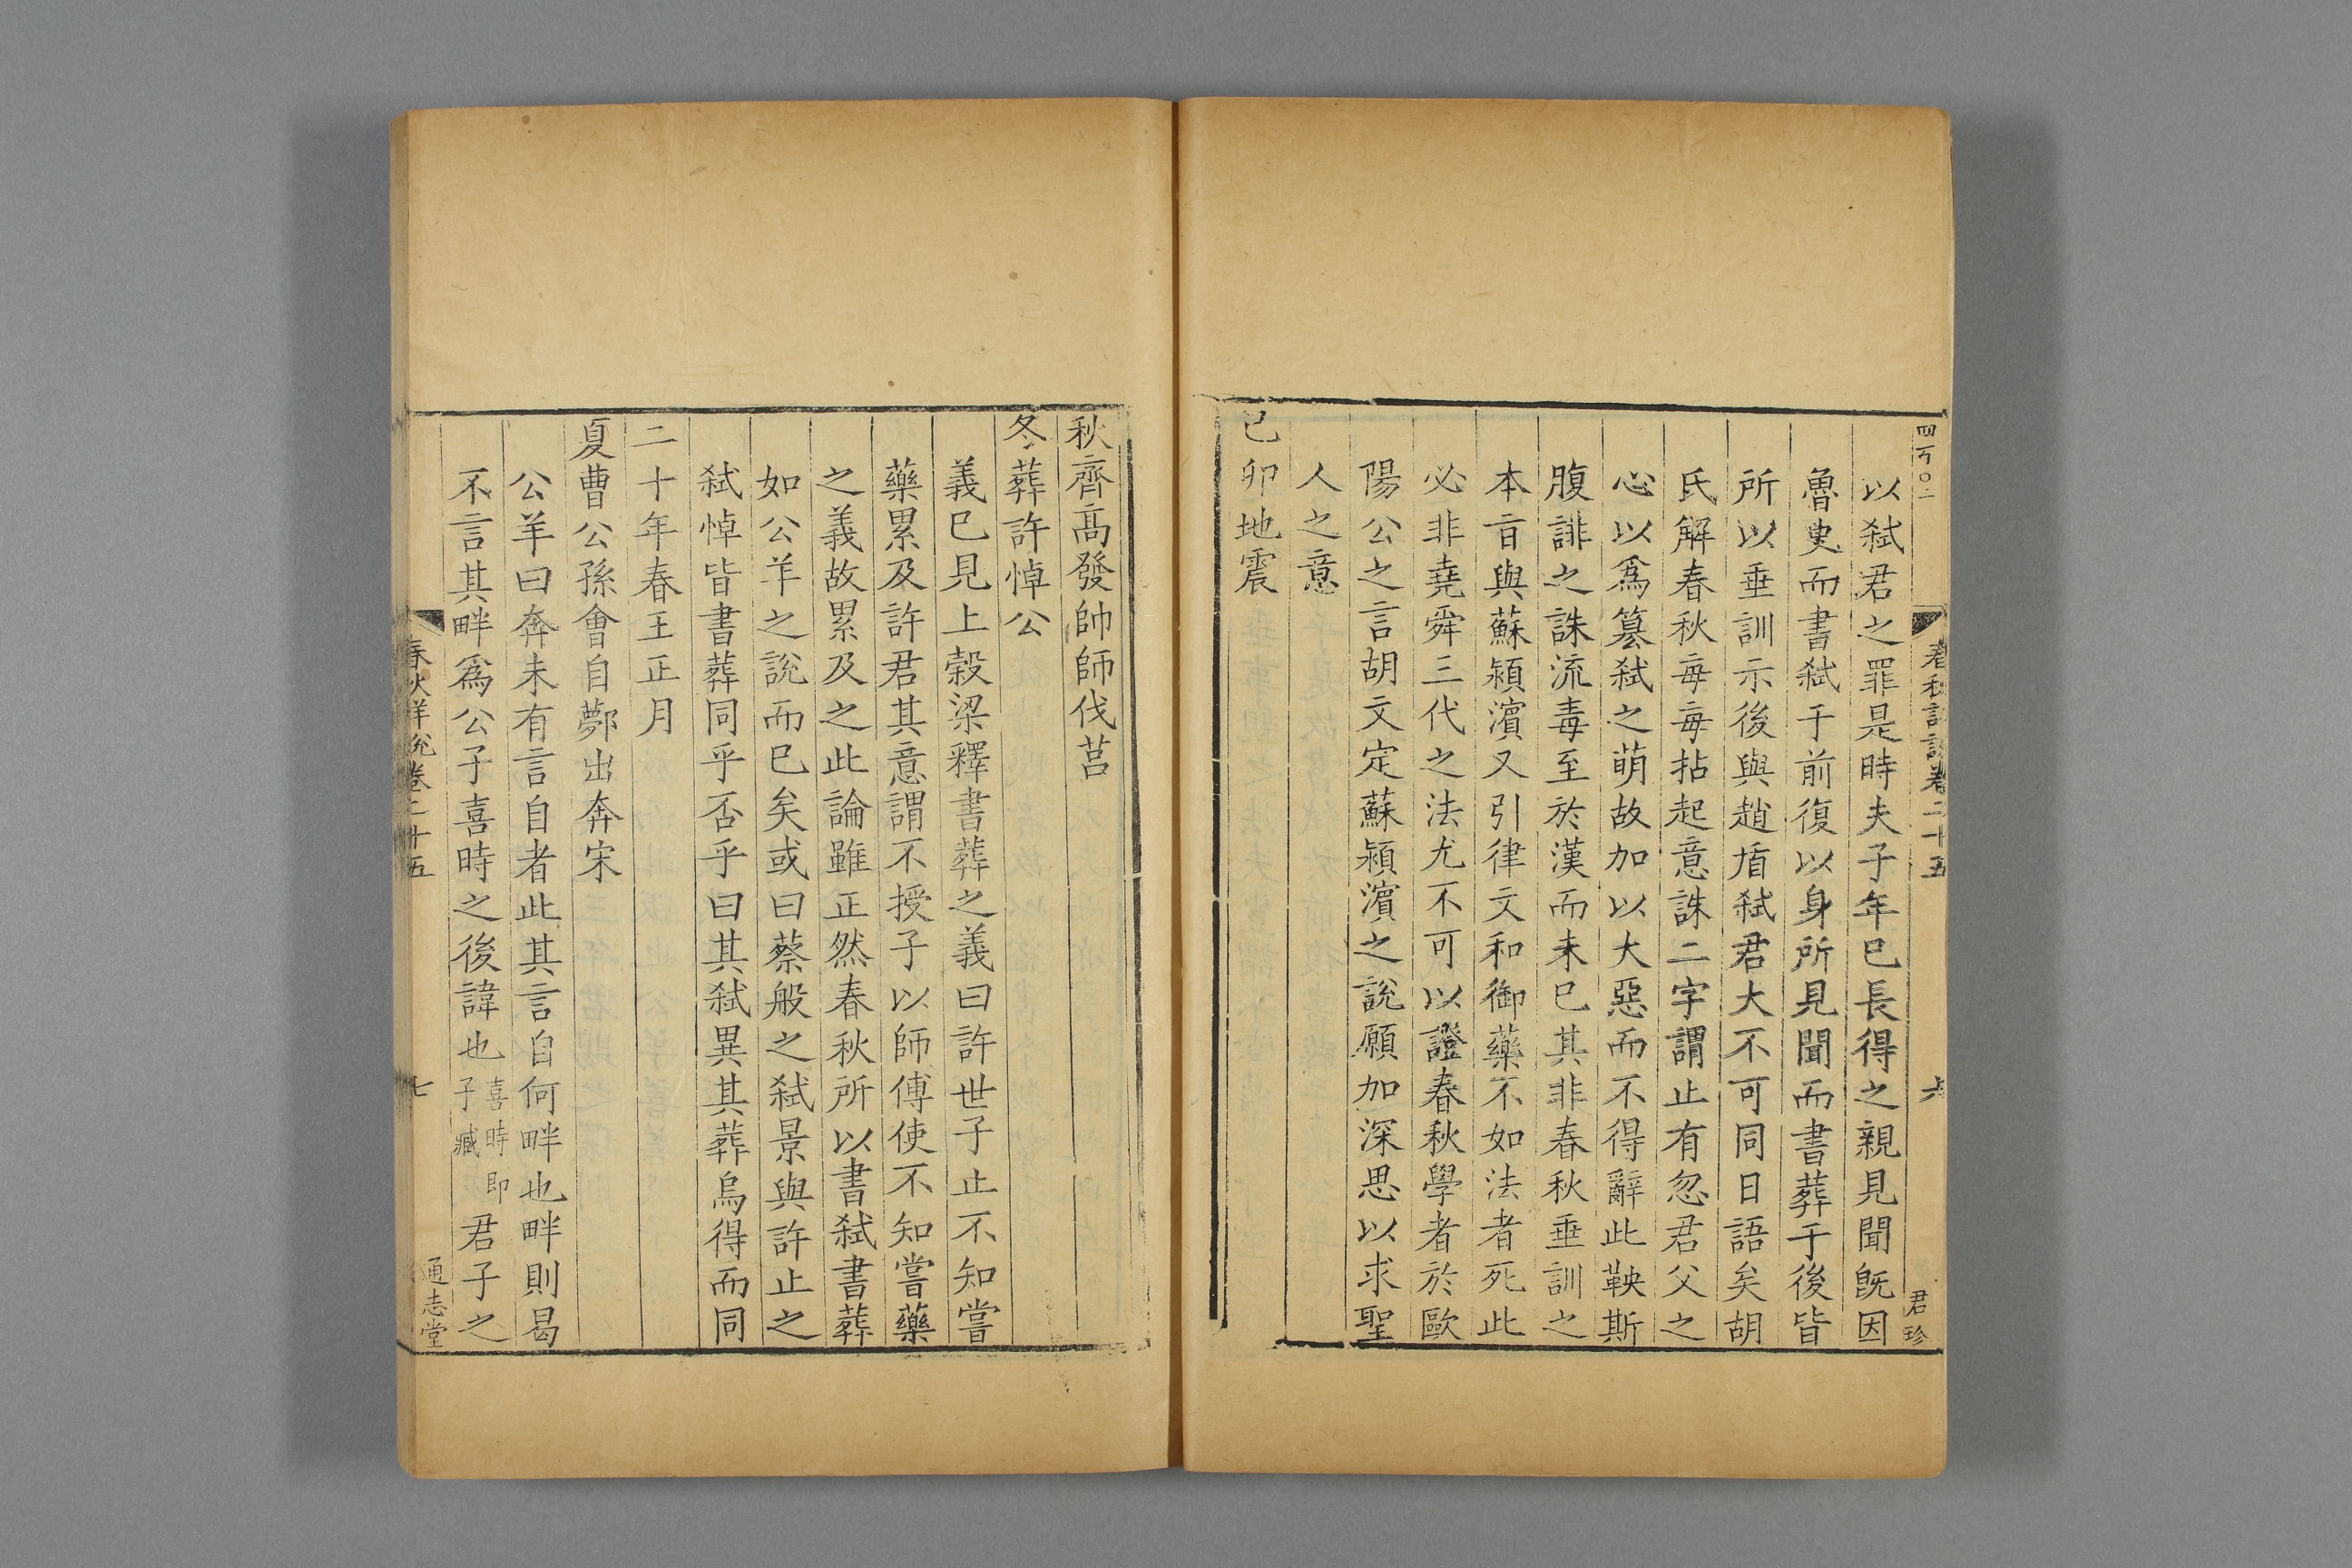 四百〇二
春秋詳說卷二十五
六
君珍
以弒君之罪是時夫子年巳長得之親見聞旣因
魯史而書弒于前復以身所見聞而書葬于後皆
所以垂訓示後與趙盾弒君大不可同日語矣胡
氏解春秋每每拈起意誅二字謂止有忽君父之
心以爲簒弒之萌故加以大惡而不得辭此鞅斯
腹誹之誅流毒至於漢而未巳其非春秋垂訓之
本旨與蘇潁濵又引律文和御藥不如法者死此
必非堯舜三代之法尤不可以證春秋學者於歐
陽公之言胡文定蘇潁濵之說願加深思以求聖
人之意
己卯地震
秋齊髙發帥師伐莒
冬葬許悼公
義巳見上榖梁釋書葬之義曰許世子止不知嘗
藥累及許君其意謂不授子以師傅使不知嘗藥
之義故累及之此論雖正然春秋所以書弒書葬
如公羊之說而巳矣或曰蔡般之弒景與許止之
弒悼皆書葬同乎否乎曰其弒異其葬烏得而同
二十年春王正月
夏曹公孫會自鄸出奔宋
公羊曰奔未有言自者此其言自何畔也畔則曷
不言其畔爲公子喜時之後諱也喜時即子臧君子之
春秋詳說卷二十五
七
通志堂